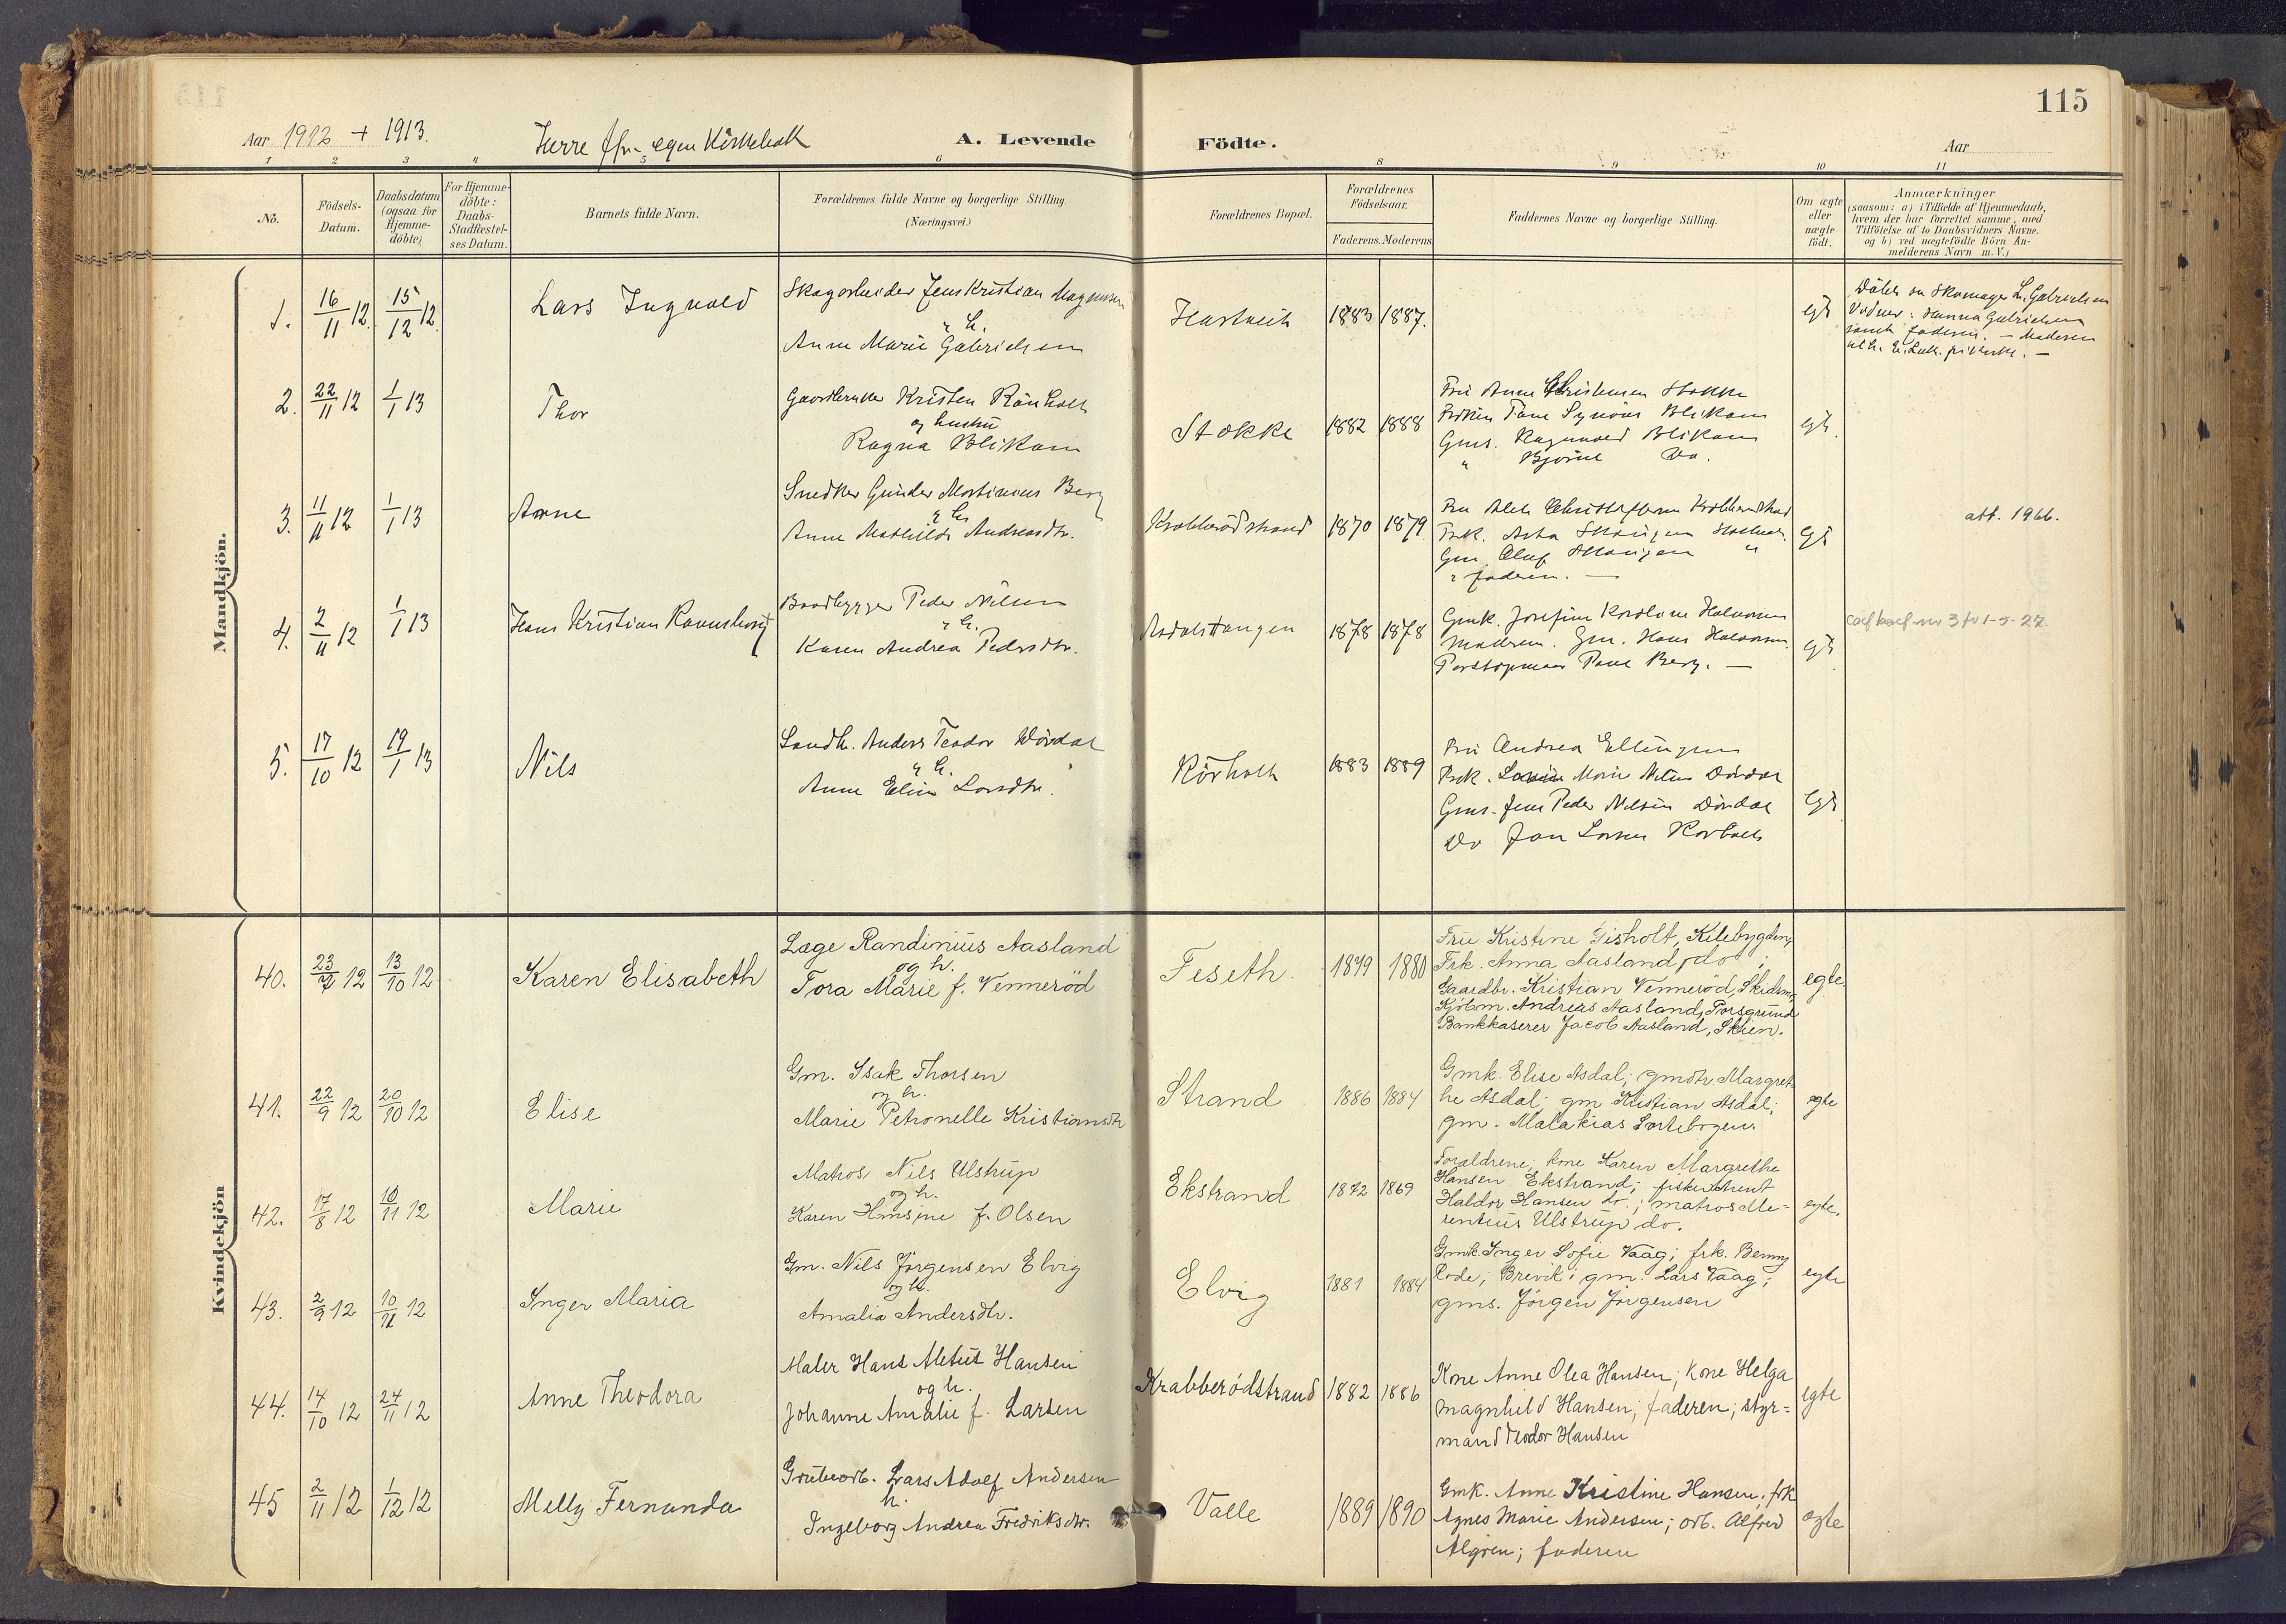 115
Aar 1912 + 1913.
Herre egen
A. Levende Födte.
Aar
1 2 3 " 5 6 8 9 10 11
No.
Födsels-
Datum.
Daabsdatum
(ogsaa for
Hjemme-
döbte)
For Hjemme-
döbte:
Daabs-
Stadfæstel-
ses Datum.
Barnets fulde Navn.
Forældrenes fulde Navne og borgerlige Stilling.
(Næringsvei.)
Forældrenes Bopæl.
Forældrenes
Födselsaar.
Faderens. Moderens
Faddernes Navne og borgerlige Stilling.
Om ægte
eller
uægte
födt.
Anmærkninger
(saasom: a) i Tilfælde af Hjemmedaab,
hvem der har forrettet samme, med
Tilföielse af to Daabsvidners Navne.
og b) ved uægtefödte Börn An-
melderens Navn m. V.)
Mandkjön.
1. 16/11 12. 15/12 12.
Lars Ingvald
Skogarbeider Jens Kristian Magnussen
& h.
Anne Marie Gabrielsen
1883 1887.
egt
Skomager L. Gabrielsen
Vidner: Hanna Gabrielsen
samt faderen. – Moderen
2. 22/11 12 1/1 13
Thor
Gaardbruker Kristen Rönholt
og hustru
Ragna Blikom
Stokke
1882 1888
Fru Anne Christensen Stokke
Fröken Tone Synöve Blikom
Gms. Ragnvald Blikom
" Bjarne Do.
egt.
3. 11/11 12 1/1 13
Arne
Snedker Gunder Martinius Berg
& h.
Anne Mathilde Andreasdtr.
Krabberödstrand
1870 1879
Frk. Asta Skougen
Gm. Oluf Skougen "
& faderen. –
egt
att. 1966.
4. 2/11 12 1/1 13
Hans Kristian Ravnsborg
Baadbygger Peder Nilsen
& h.
Karen Andrea Pedersdtr.
Asdalstangen
1878 1878
Gmk. Josefine Karoline Halvorsen
Moderen. Gm. Hans Halvorsen.
Berg. –
egt
nr 3 1-5-27.
5. 17/10 12 19/1 13
Nils
Landh. Anders Teodor Dördal
& h.
Anne Elise Larsdtr.
Körholt
1883 1889
Fru Andrea Ellingsen
Frk. Marie Nilsen Dördal
Gms. Jens Peder Nilsen Dördal
Do Jon Larsen Körholt
egt.
Kvindekjön
40. 23/7 12 13/10 12
Karen Elisabeth
Læge Randinius Aasland
og h.
Tora Marie f. Vennerød
Feseth.
1879 1880
Frue Kristine Gisholt, Kilebygden,
Frk. Anna Aasland, do;
Gaardbr. Kristian Vennerød, Skidsmo,
Kjöbm. Andreas Aasland, Porsgrund
Bankkaserer Jacob Aasland, Skien.
egte
41. 22/9 12 20/10 12
Elise
Gm. Isak Thorsen
og h.
Marie Petronelle Kristiansdtr
Strand
1886 1884
Gmk. Elise Asdal; gmdtr. Margret-
he Asdal; gm Kristian Asdal;
gm. Malakias Sortebogen.
egte
42. 17/8 12 10/11 12
Marie
Matros Nils Ulstrup
og h.
Karen Hansine f. Olsen
Ekstrand
1872 1869
Forældrene; kone Karen Margrethe
Hansen Ekstrand;
Haldor Hansen do.; matros Me-
rentius Ulstrup do.
egte.
43. 2/9 12 10/11 12
Inger Maria
Gm. Nils Jörgensen Elvig
og h.
Amalia Andersdtr.
Elvig
1881 1884
Gmk. Inger Sofie Vaag; frk. Benny
Rode; Brevik; gm. Lars Vaag;
gms. Jörgen Jörgensen
egte
44. 14/10 12 24/11 12
Anne Theodora
Maler Hans Aletus Hansen
og h.
Johanne Amalie f. Larsen
Krabberödstrand
1882 1886
Kone Anne Olea Hansen; kone Helga
Magnhild Hansen; faderen; styr-
mand Teodor Hansen
egte
45 2/11 12 1/12 12
Melly Fernanda
Grubearb. Lars Adolf Andersen
h.
Ingeborg Andrea Fredriksdtr.
Valle
1889 1890
Gmk. Anne Kristine Hansen; frk
Agnes Marie Andersen; arb. Alfred
Algren; faderen
egte